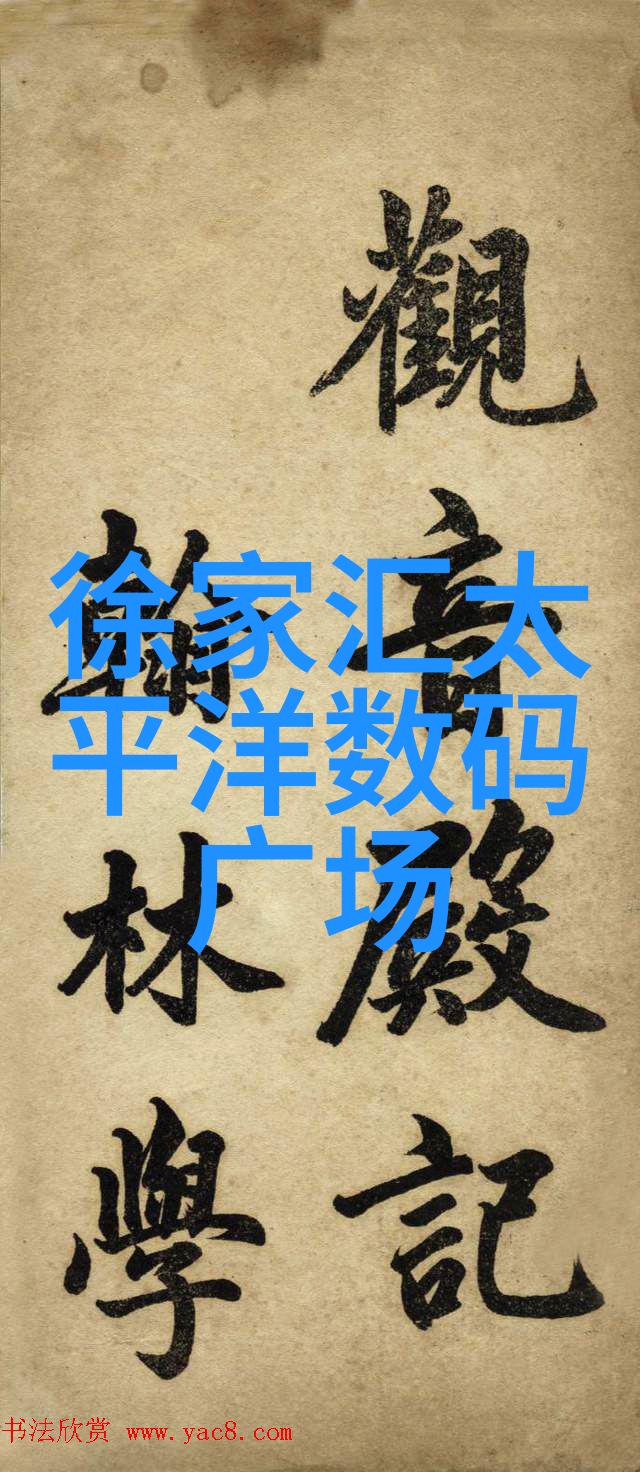 觀音殿記
翰林學
徐家汇太
平洋数码
广场
书法欣赏 www.yac8.com